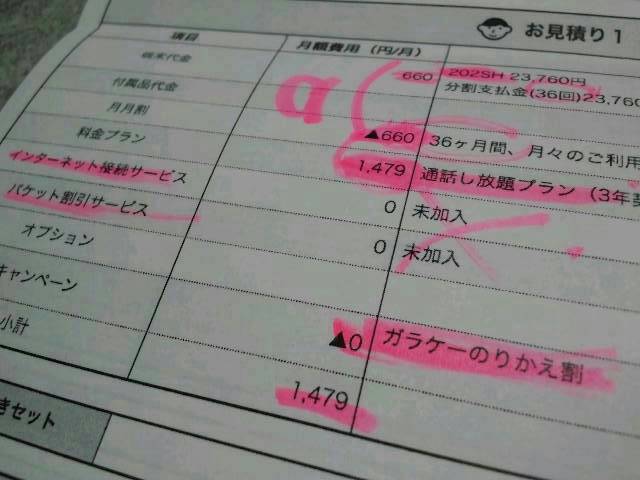 お見積り1
項目 月額費用 (円/月)
端末代金 660 202SH 23,760円
付属品代金 分割支払金(36回)23,760
月月割 ▲660 36ヶ月間、月々のご利用
料金プラン 1,479 通話し放題プラン (3年契
インターネット接続サービス 0 未加入
パケット割引サービス 0 未加入
オプション
キャンペーン ▲0 ガラケーのりかえ割
小計 1,479
きセット
a